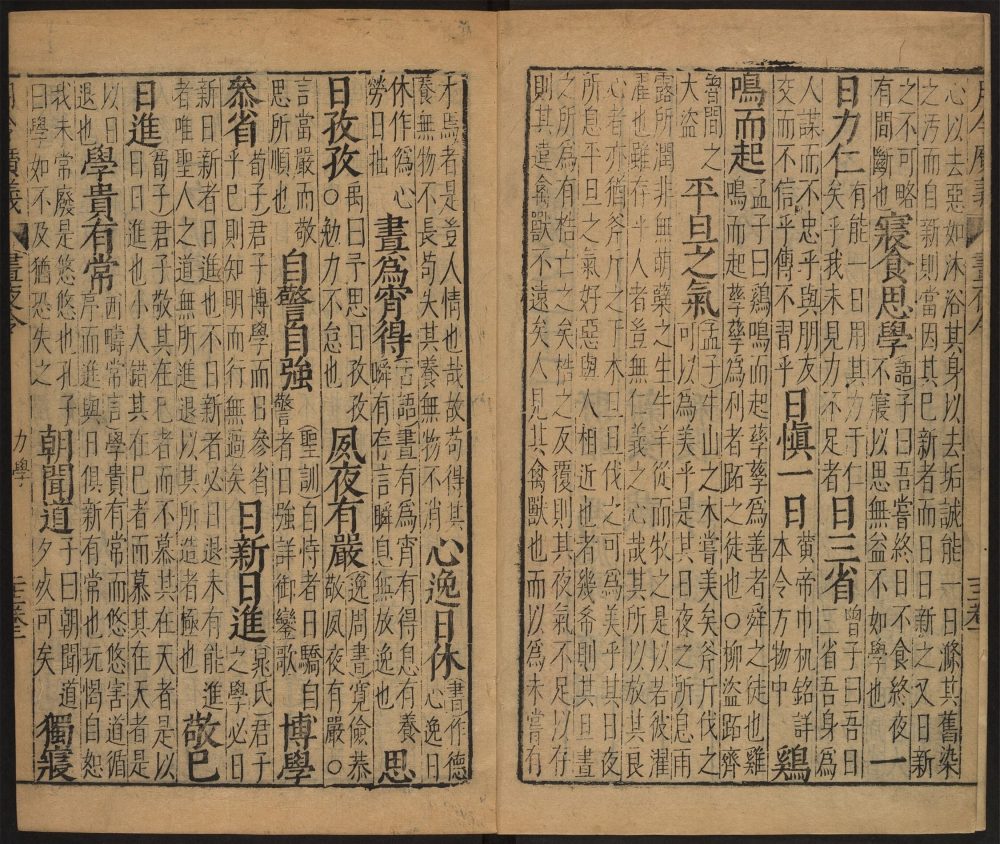 心以去惡如沐浴其身以去垢誠能一日滌其舊染
之汚而自新則當因其已新者而日日新之又日新
之不可略
有間斷也
寢食思學
語子曰吾嘗終日不食終夜
不寢以思無益不如學也
一
日力仁
有能一日用其力于仁
矣乎我未見力不足者
日三省
曾子曰吾日
三省吾身為
人謀而不忠乎與朋友
交而不信乎傳不習乎
日慎一日
黃帝巾机銘詳
本令方物中
鷄
鳴而起
孟子曰鷄鳴而起孳孳為善者舜之徒也雞
鳴而起孳孳為利者跖之徒也○柳盜跖齊
魯間之
大盜
平旦之氣
孟子牛山之木嘗美矣斧斤伐之
可以為美乎是其日夜之所息雨
露所潤非無萌蘗之生牛羊從而牧之是以若彼濯
濯也雖存乎人者豈無仁義之心哉其所以放其良
心者亦猶斧斤之于木旦旦伐之可為美乎其日夜
所息平旦之氣好惡與人相近也者幾希則其旦晝
之所為有梏亡之矣梏之反覆則其夜氣不足以存
則其違禽獸不遠矣人見其禽獸也而以為未嘗有
才焉者是豈人情也哉故苟得其
養無物不長苟失其養無物不消
心逸日休
書作德
心逸日
休作僞心
勞日拙
晝爲宵得
古語晝有為宵有得息有養
瞬有存言瞬息無放逸也
思
日孜孜
禹曰予思日孜孜
○勉力不怠也
夙夜有嚴
逸周書寛儉恭
敬夙夜有嚴○
言當嚴而敬
思所順也
自警自強
聖訓自恃者日驕自
警者日強詳御鑾歌
博學
叅省
荀子君子博學而日參省
乎己則知明而行無過矣
日新日進
晁氏君子
之學必日
新日新者日進也不日新者必日退未有能進
者唯聖人之道無所進退以其所造者極也
敬己
日進
荀子君子敬其在己者而不慕其在天者是以
日日進也小人錯其在己者而慕其在天者是
以日
退也
學貴有常
西疇常言學貴有常而悠悠害道循
序而進與日俱新有常也玩愒自恕
我未常廢是悠悠也孔子
曰學如不及猶恐失之
朝聞道
子曰朝聞道
夕死可矣
獨寢
力學